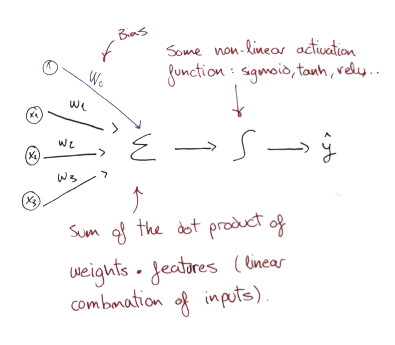 Bias
Some non-linear activation
function : sigmoid, tanh, relu..
1
W₀
x₁
W₁
x₂
W₂
x₃
W₃
Σ
∫
ŷ
Sum of the dot product of
weights • features (linear
combination of inputs).